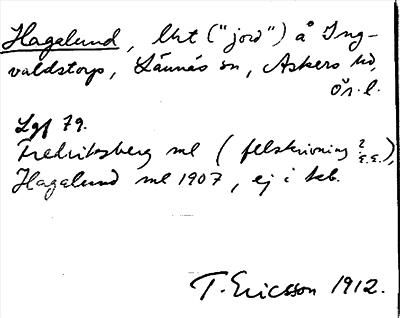 Hagalund, lht ("jord") å Ing-
valdstorp, Lännäs sn, Askers hd,
Ör. l.
Lgf 79.
Fredriksberg ml (felskrivning? E.E.),
Hagalund ml 1907, ej i kb.
T. Ericsson 1912.